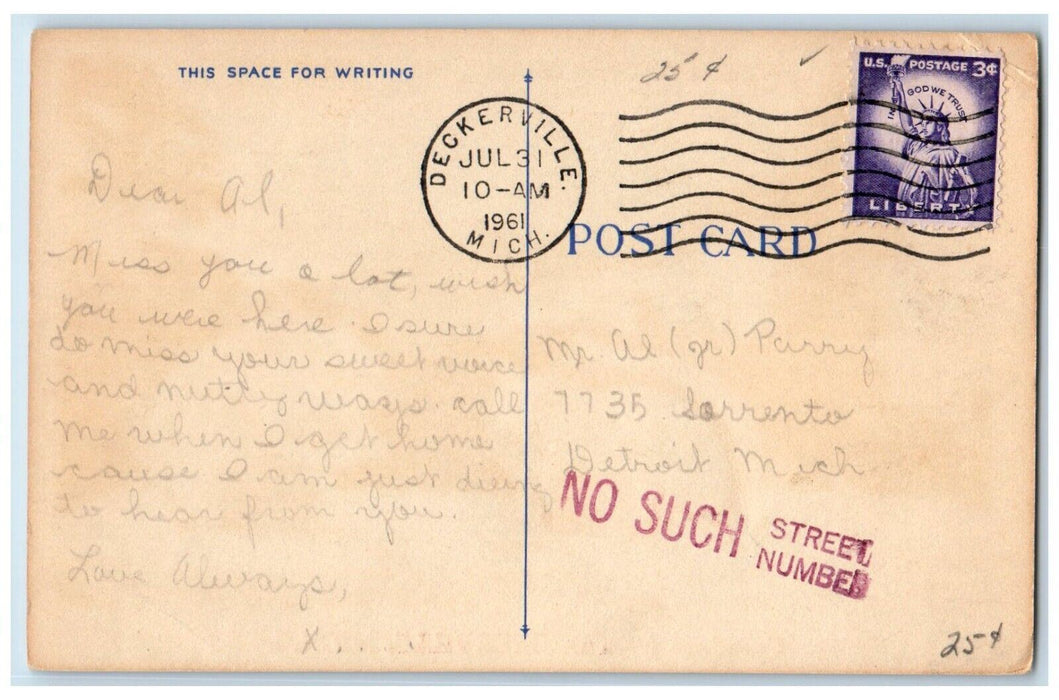 THIS SPACE FOR WRITING
25¢
U.S. POSTAGE 3¢
IN GOD WE TRUST
LIBERTY
DECKERVILLE.
JUL 31
10-AM
1961
MICH.
POST CARD
Dear Al,
Miss you a lot, wish
you were here. I sure
do miss your sweet voice
and nutty ways. call
me when I get home
cause I am just dieing
to hear from you.
Love Always,
X....
Mr. Al (jr) Parry
7735 Sorrento
Detroit Mich
NO SUCH STREET
NUMBER
25¢